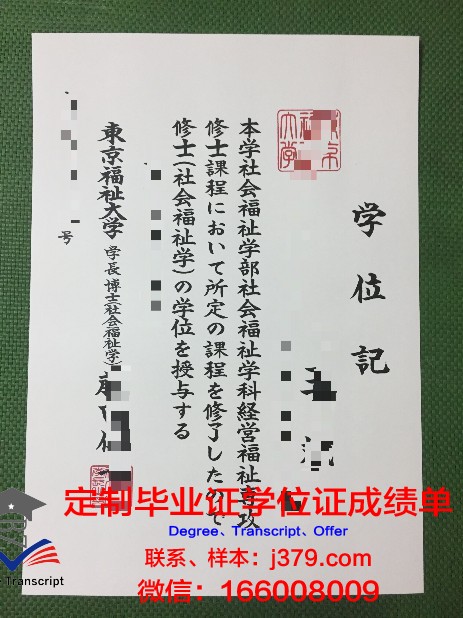 学位記
本学社会福祉学部社会福祉学科経営福祉専攻
修士課程において所定の課程を修了したので
修士(社会福祉学)の学位を授与する
東京福祉大学 学長 博士(社会福祉学)
号
定制毕业证学位证成绩单
Degree, Transcript, Offer
联系、样本：j379.com
微信：166008009
Transcript